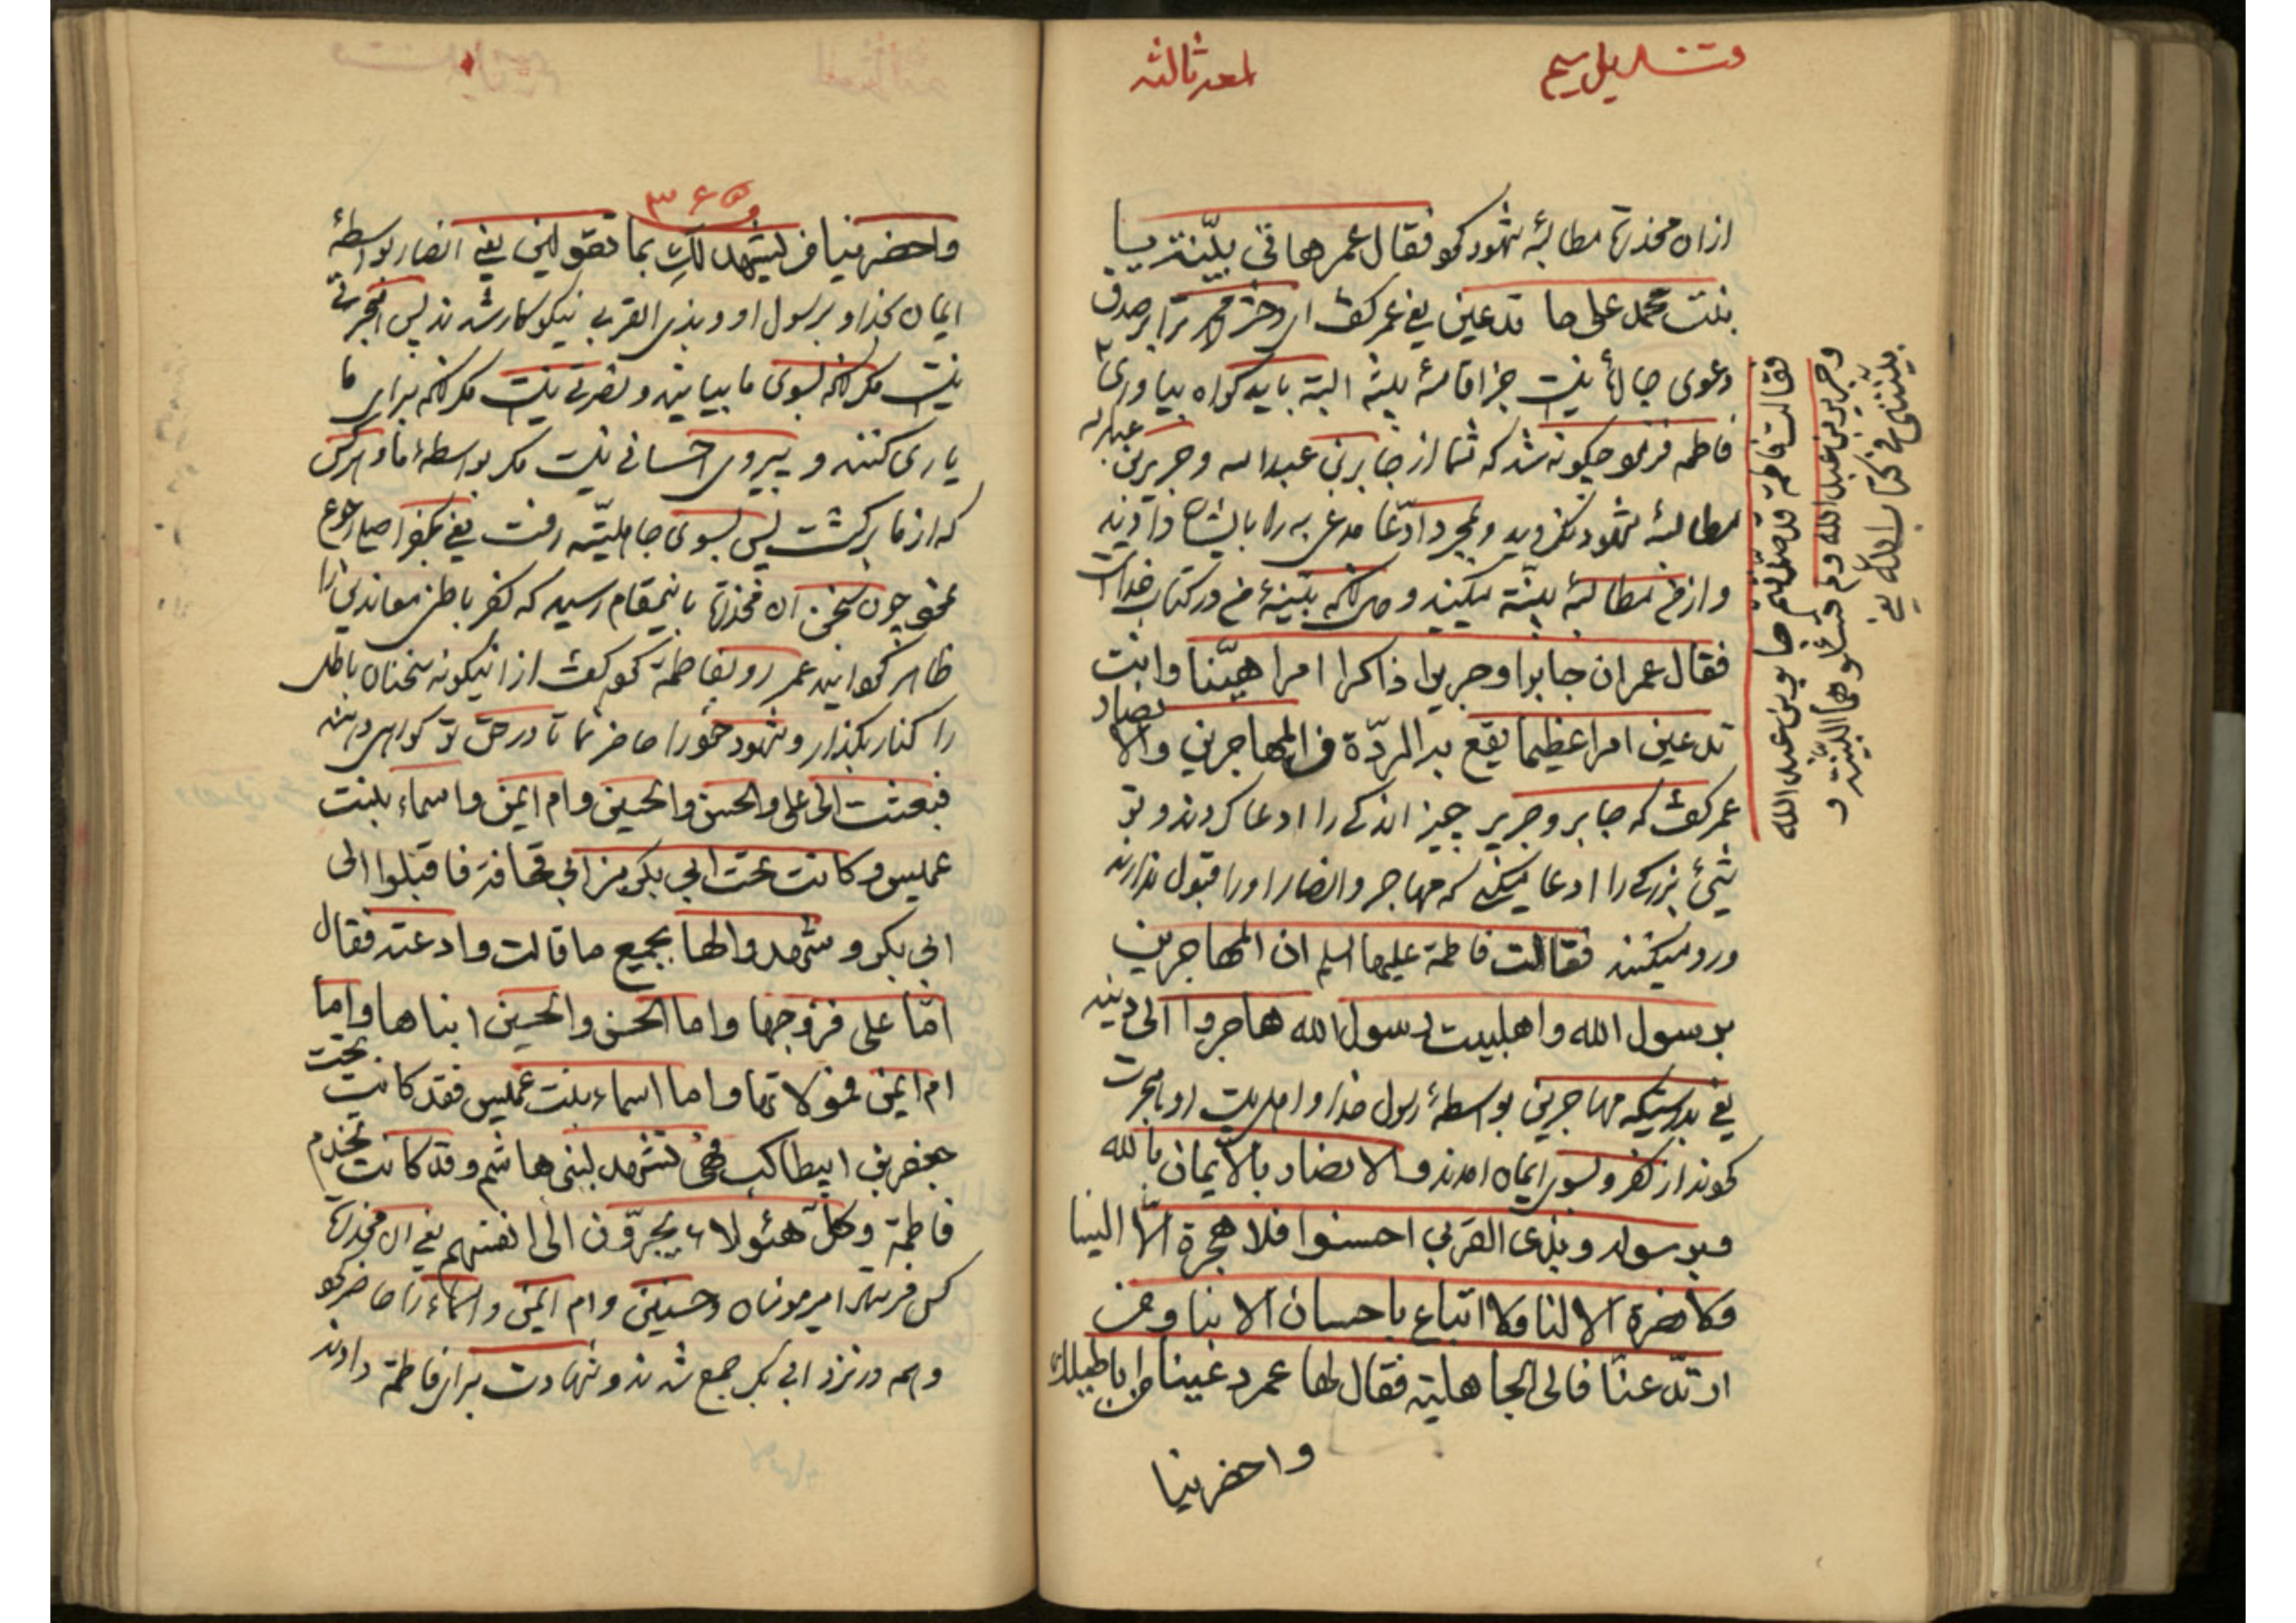 لمعه ثالثه
از ان مخدره مطالبهٔ شهود نمود فقال عمر هاتی ببیّنة یا
بنت محمد علی ما تدعین یعنی عمر گفت ای دختر محمد ترا بر صدق
دعوی جاره نیست جز اقامهٔ بینه البته باید گواه بیاوری
فاطمه فرمود چگونه شد که شما از جابر بن عبدالله و جریر بن عبدالله
مطالبهٔ شهود نکردید و بمجرد ادّعا مدعی به را بایشان دادید
و از من مطالبهٔ بینّه میکنید و حال انکه بینهٔ من در کتاب خداست
فقال عمر ان جابرا وجریرا ذاکرا امرا هیّنا وانت
تدعین امرا عظیما یقع به الردّة فی المهاجرین والانصار
عمر گفت که جابر و جریر چیز اندکی را ادعا کردند و تو
شیئ بزرگی را ادعا میکنی که مهاجر و انصار او را قبول ندارند
و رد میکنند فقالت فاطمة علیها السلم ان المهاجرین
برسول الله واهلبیت رسول الله هاجروا الی دینه
یعنی بدرستیکه مهاجرین بواسطهٔ رسول خدا و اهل بیت او هجرت
نمودند از کفر و بسوی ایمان امدند والانصار بالایمان بالله
وبرسوله وبذی القربی احسنوا فلا هجرة الّا الینا
ولا نصرة الا لنا ولا اتباع باحسان الا بنا ومن
ارتدّ عنّا فالی الجاهلیة فقال لها عمر دعینا من اباطیلک
واحضرینا
فقالت فاطمة قد صدّقتم جابر بن عبد الله
وجریر بن عبد الله ولم تسئلوهما البیّنة و
بیّنتی فی کتاب الله یعنی
۳۶۵
واحضرینا من یشهد لکِ بما تقولین یعنی انصار بواسطهٔ
ایمان بخدا و برسول او و بذی القربی نیکوکار شدند پس هجرتی
نیست مگر انکه بسوی ما بیایند و نصرتی نیست مگر انکه برای ما
یاری کنند و پیروی احسانی نیست مگر بواسطهٔ ما و هرکس
که از ما برگشت پس بسوی جاهلیّت رفت یعنی بکفر اصلی رجوع
نمود چون سخن ان مخدره باینمقام رسید که کفر باطن معاندین را
ظاهر گردانید عمر رو بفاطمه نمود گفت از اینگونه سخنان باطل
را کنار بگذار و شهود خود را حاضر نما تا در حق تو گواهی دهند
فبعثت الی علی والحسن والحسین وام ایمن واسماء بنت
عمیس وکانت تحت ابی بکر بن ابی قحافة فاقبلوا الی
ابی بکر وشهدوا لها بجمیع ما قالت وادعته فقال
امّا علی فزوجها واما الحسن والحسین ابناها واما
ام ایمن فمولاتها واما اسماء بنت عمیس فقد کانت تحت
جعفر بن ابیطالب فهی تشهد لبنی هاشم وقد کانت تخدم
فاطمة وکلّ هئولاء یجرّون الی انفسهم یعنی ان مخدره
کس فرستاد امیرمومنان و حسنین و ام ایمن و اسماء را حاضر نمود
و همه در نزد ابی بکر جمع شدند و شهادت برای فاطمه دادند